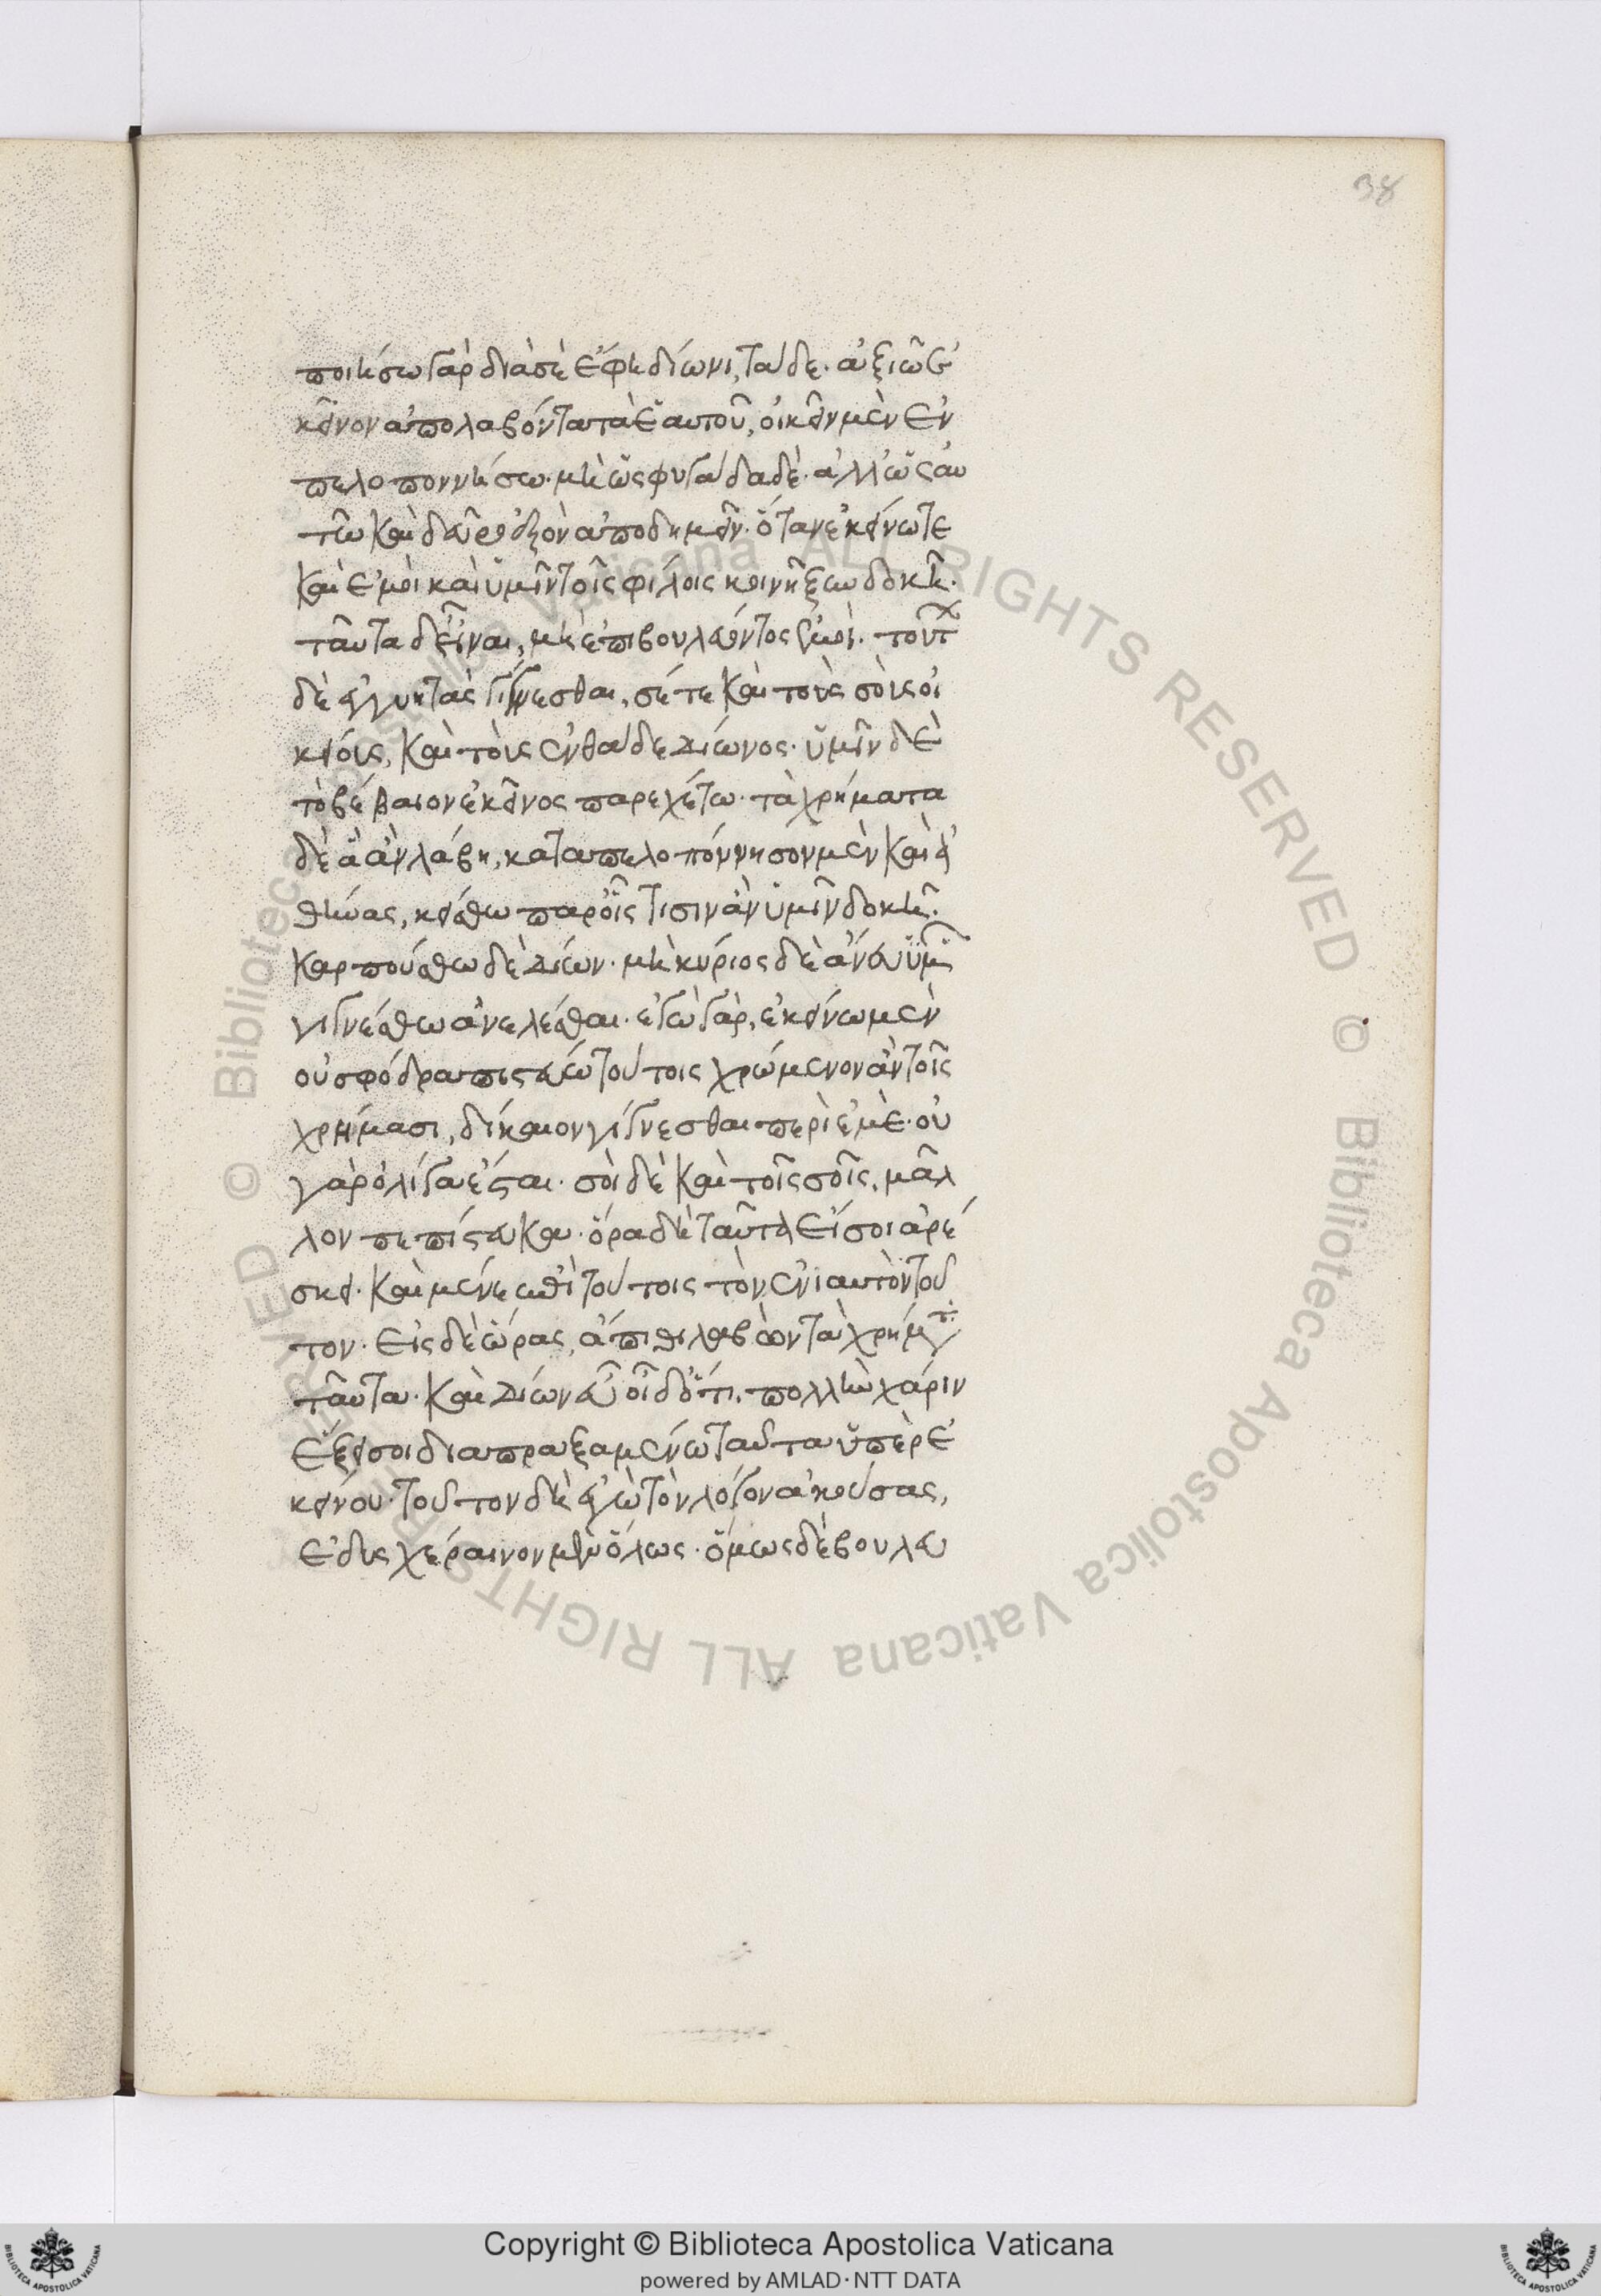 38
ποιήσω γὰρ διὰ σὲ ἔφη δίωνι, τάδε· ἀξιῶ ἐ
κεῖνον ἀπολαβόντα τὰ ἑαυτοῦ, οἰκεῖν μὲν ἐν
πελοποννήσω· μὴ ὡς φυγάδα δὲ· ἀλλ' ὡς αὐ
τῶ καὶ δεῦρο ἐξὸν ἀποδημεῖν· ὅταν ἐκείνω τε
καὶ ἐμοὶ καὶ ὑμῖν τοῖς φίλοις κοινῆ ξυνδοκῆ·
ταῦτα δ' εἶναι, μὴ ἐπιβουλεύοντος ἐμοί· τούτ
δὲ ἐγγυητὰς γίγνεσθαι, σέ τε καὶ τοὺς σοὺς οἰ
κείους, καὶ τοὺς ἐνθάδε δίωνος· ὑμῖν δὲ
τὸ βέβαιον ἐκεῖνος παρεχέτω· τὰ χρήματα
δὲ ἃ ἂν λάβη, κατὰ πελοπόννησον μὲν καὶ ἀ
θήνας, κείσθω παρ' οἷς τισιν ἂν ὑμῖν δοκῆ·
καρπούσθω δὲ δίων· μὴ κύριος δὲ ἄνευ ὑμῶν
γιγνέσθω ἀνελέσθαι· ἐγὼ γὰρ, ἐκείνω μὲν
οὐ σφόδρα πιστεύω τούτοις χρώμενον ἂν τοῖς
χρήμασι, δίκαιον γίγνεσθαι περὶ ἐμὲ· οὐ
γὰρ ὀλίγα ἔσται· σοὶ δὲ καὶ τοῖς σοῖς, μᾶλ
λον πεπίστευκα· ὅρα δὴ ταῦτα εἴ σοι ἀρέ
σκει· καὶ μένε ἐπὶ τούτοις τὸν ἐνιαυτὸν τοῦ
τον· εἰς δὲ ὥρας, ἄπιθι λαβὼν τὰ χρήματ
ταῦτα· καὶ δίων εὖ οἶδ' ὅτι, πολλὴν χάριν
ἕξει σοι διαπραξαμένω ταῦτα ὑπὲρ ἐ
κείνου· τοῦτον δὴ ἐγὼ τὸν λόγον ἀκούσας,
ἐδυσχέραινον μὲν ὅλως· ὅμως δὲ βουλευ
Copyright © Biblioteca Apostolica Vaticana
powered by AMLAD·NTT DATA
© Biblioteca Apostolica Vaticana ALL RIGHTS RESERVED © Biblioteca Apostolica Vaticana ALL RIGHTS RESERVED